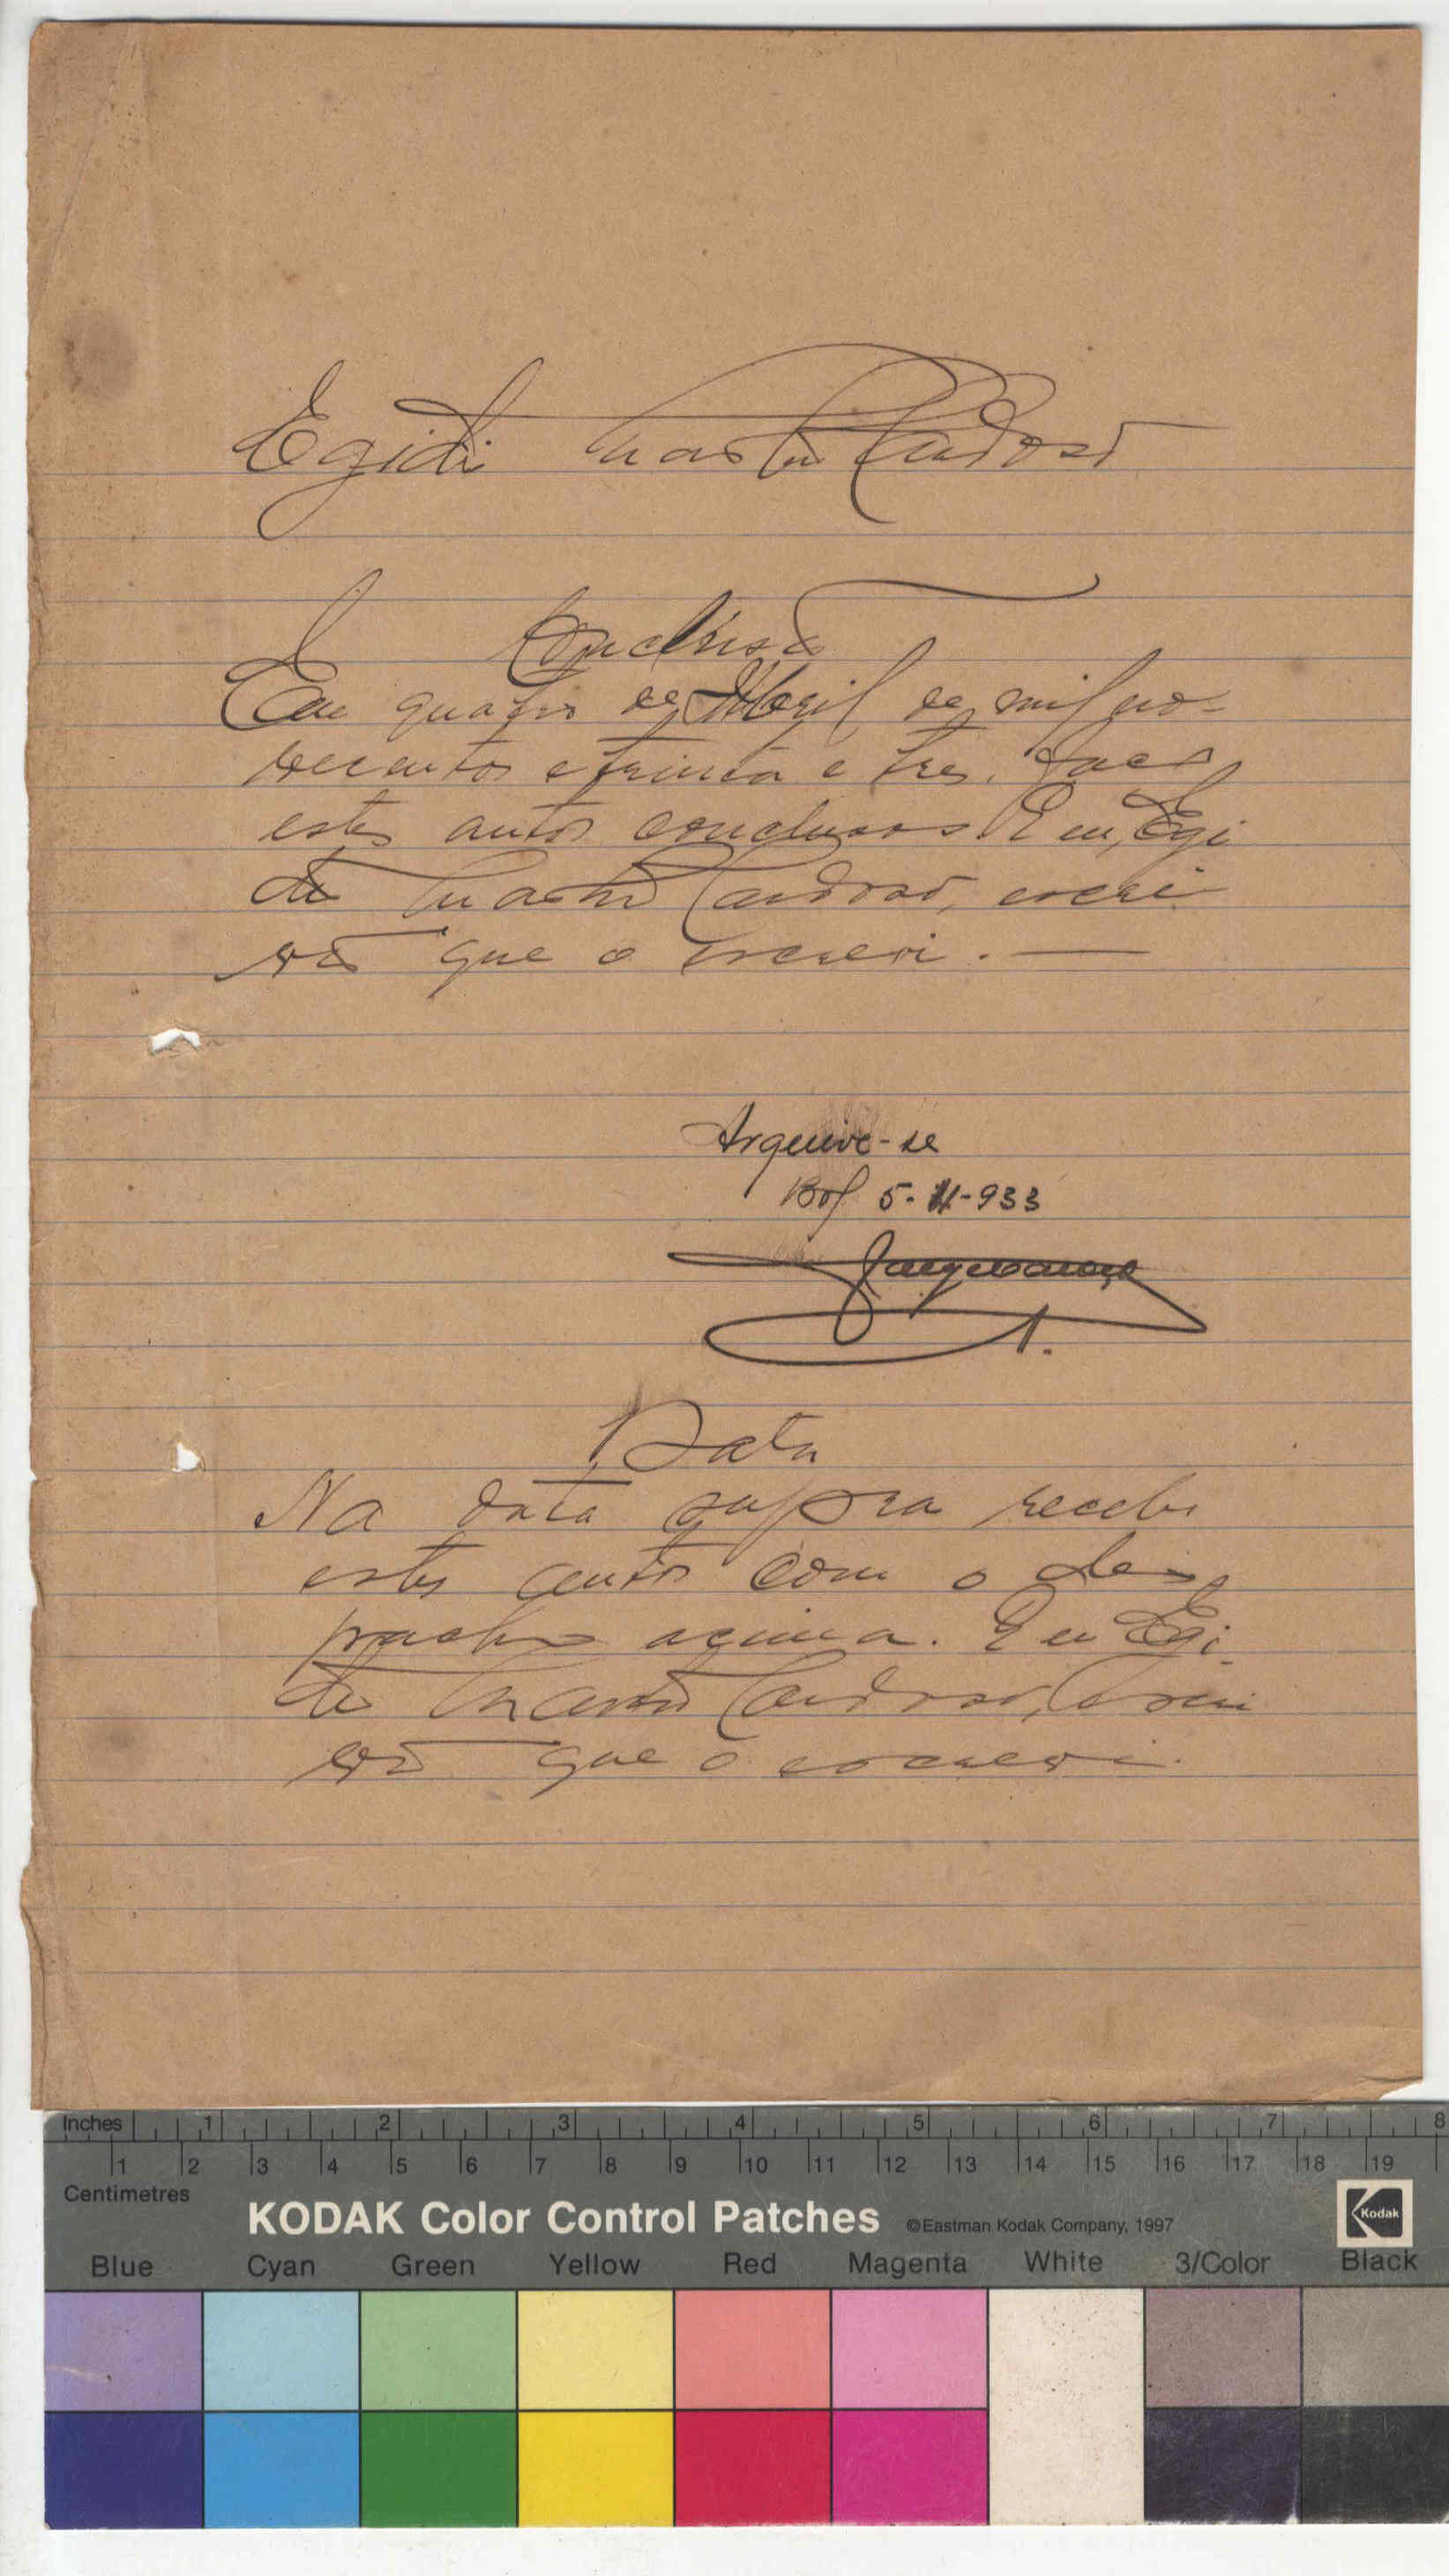 Egidio Martins Cardoso
Conclusão
Em quatro de Abril de mil no-
vecentos e trinta e tres, faço
estes autos conclusos. Eu, Egi
dio Martins Cardoso, escri
vão que o escrevi.
Arquive-se
5-4-933
Data
Na data supra recebi
estes autos com o des
pacho acima. Eu Egi
dio Martins Cardoso, Escri
vão que o escrevi.
Inches 1 2 3 4 5 6 7 8
1 2 3 4 5 6 7 8 9 10 11 12 13 14 15 16 17 18 19
Centimetres
KODAK Color Control Patches ©Eastman Kodak Company, 1997 Kodak
Blue Cyan Green Yellow Red Magenta White 3/Color Black